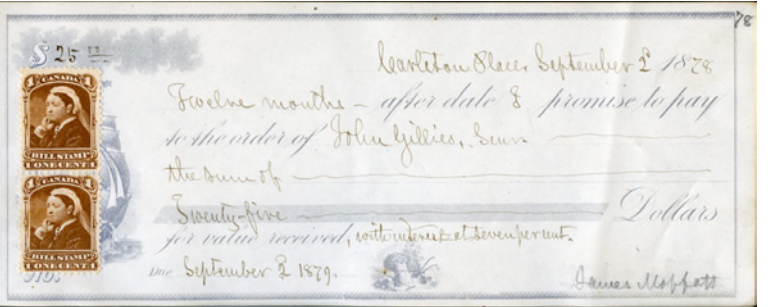 78
$ 25 00
Carleton Place, September 2 1878
Twelve months - after date I promise to pay
to the order of John Gillies, Senr
the sum of
Twenty-five Dollars
for value received, with interest at seven per cent.
Due September 2 1879.
James Moffatt
1 CANADA 1
BILL STAMP
1 ONE CENT 1
1 CANADA 1
BILL STAMP
1 ONE CENT 1
No.